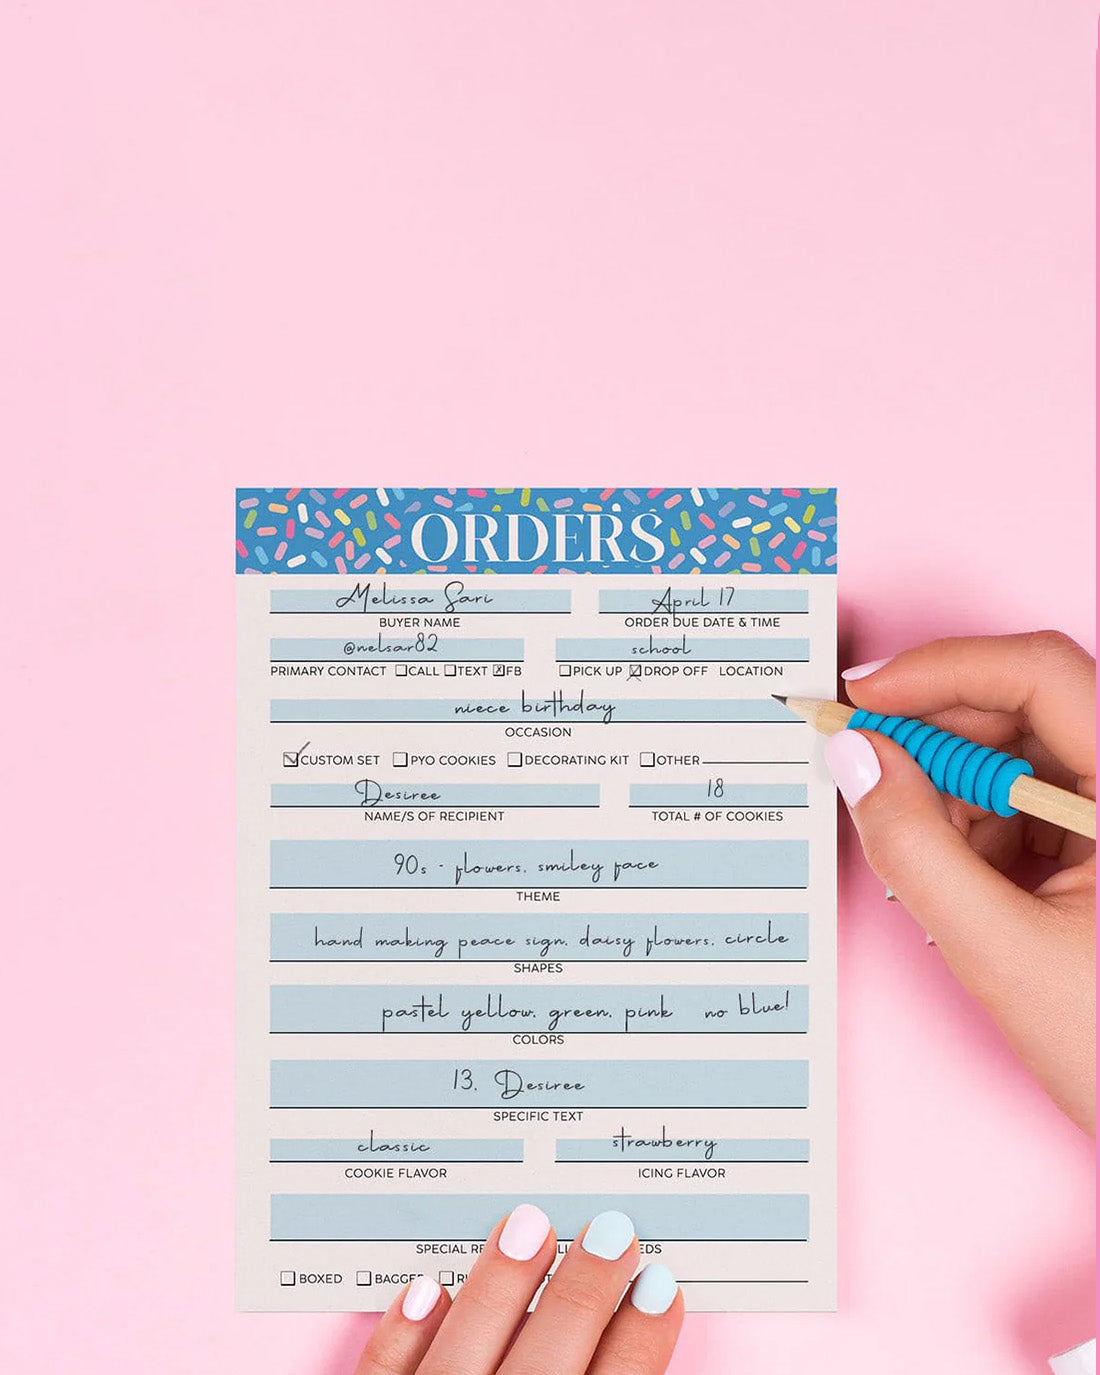 ORDERS
Melissa Sari April 17
BUYER NAME ORDER DUE DATE & TIME
@nelsar82 school
PRIMARY CONTACT CALL TEXT FB PICK UP DROP OFF LOCATION
niece birthday
OCCASION
CUSTOM SET PYO COOKIES DECORATING KIT OTHER
Desiree 18
NAME/S OF RECIPIENT TOTAL # OF COOKIES
90s - flowers, smiley face
THEME
hand making peace sign, daisy flowers, circle
SHAPES
pastel yellow, green, pink no blue!
COLORS
13, Desiree
SPECIFIC TEXT
classic strawberry
COOKIE FLAVOR ICING FLAVOR
SPECIAL
BOXED